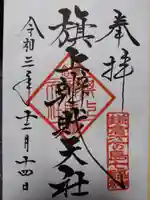 奉拝
旗上辨財天社
令和三年十二月十四日